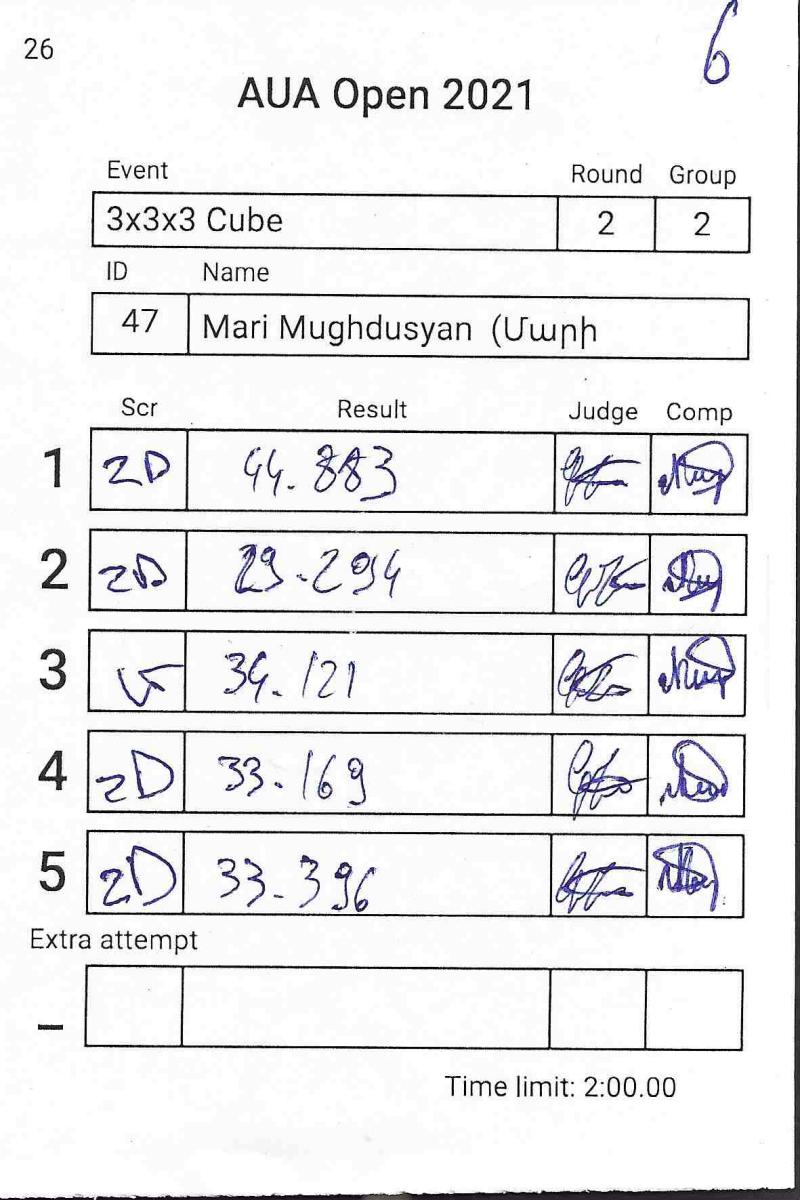 26
6
AUA Open 2021
Event Round Group
3x3x3 Cube 2 2
ID Name
47 Mari Mughdusyan (Մարի
Scr Result Judge Comp
1 ZD 44.883
2 ZD 29.294
3 34.121
4 ZD 33.169
5 ZD 33.396
Extra attempt
_
Time limit: 2:00.00